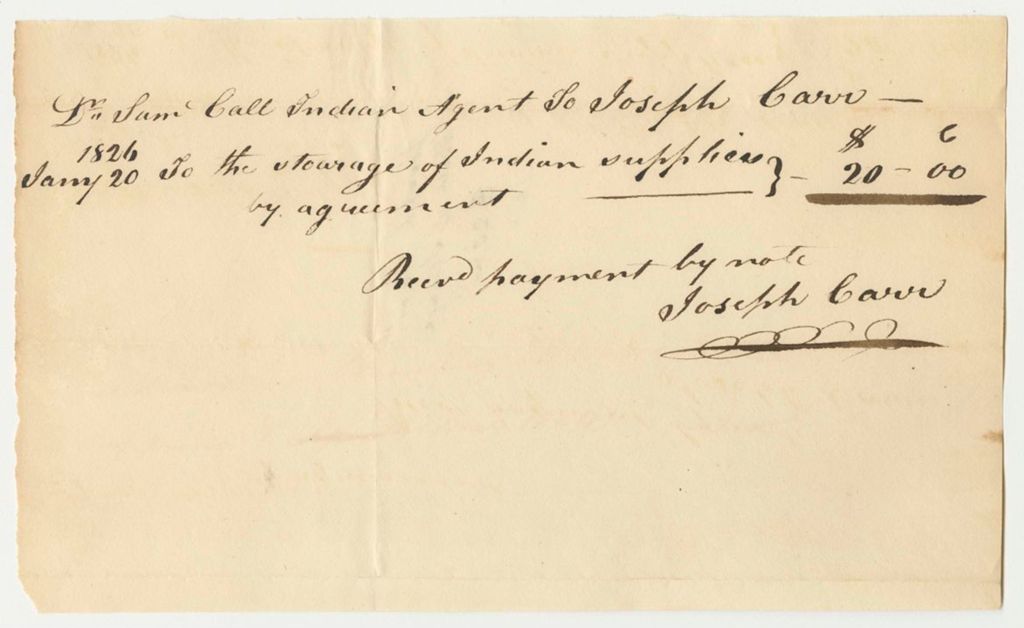 Dr. Sam Call Indian Agent To Joseph Carr —
1826 $ C
Jany 20 To the stourage of Indian supplies } – 20 – 00
by agreement
Recevd payment by note
Joseph Carr